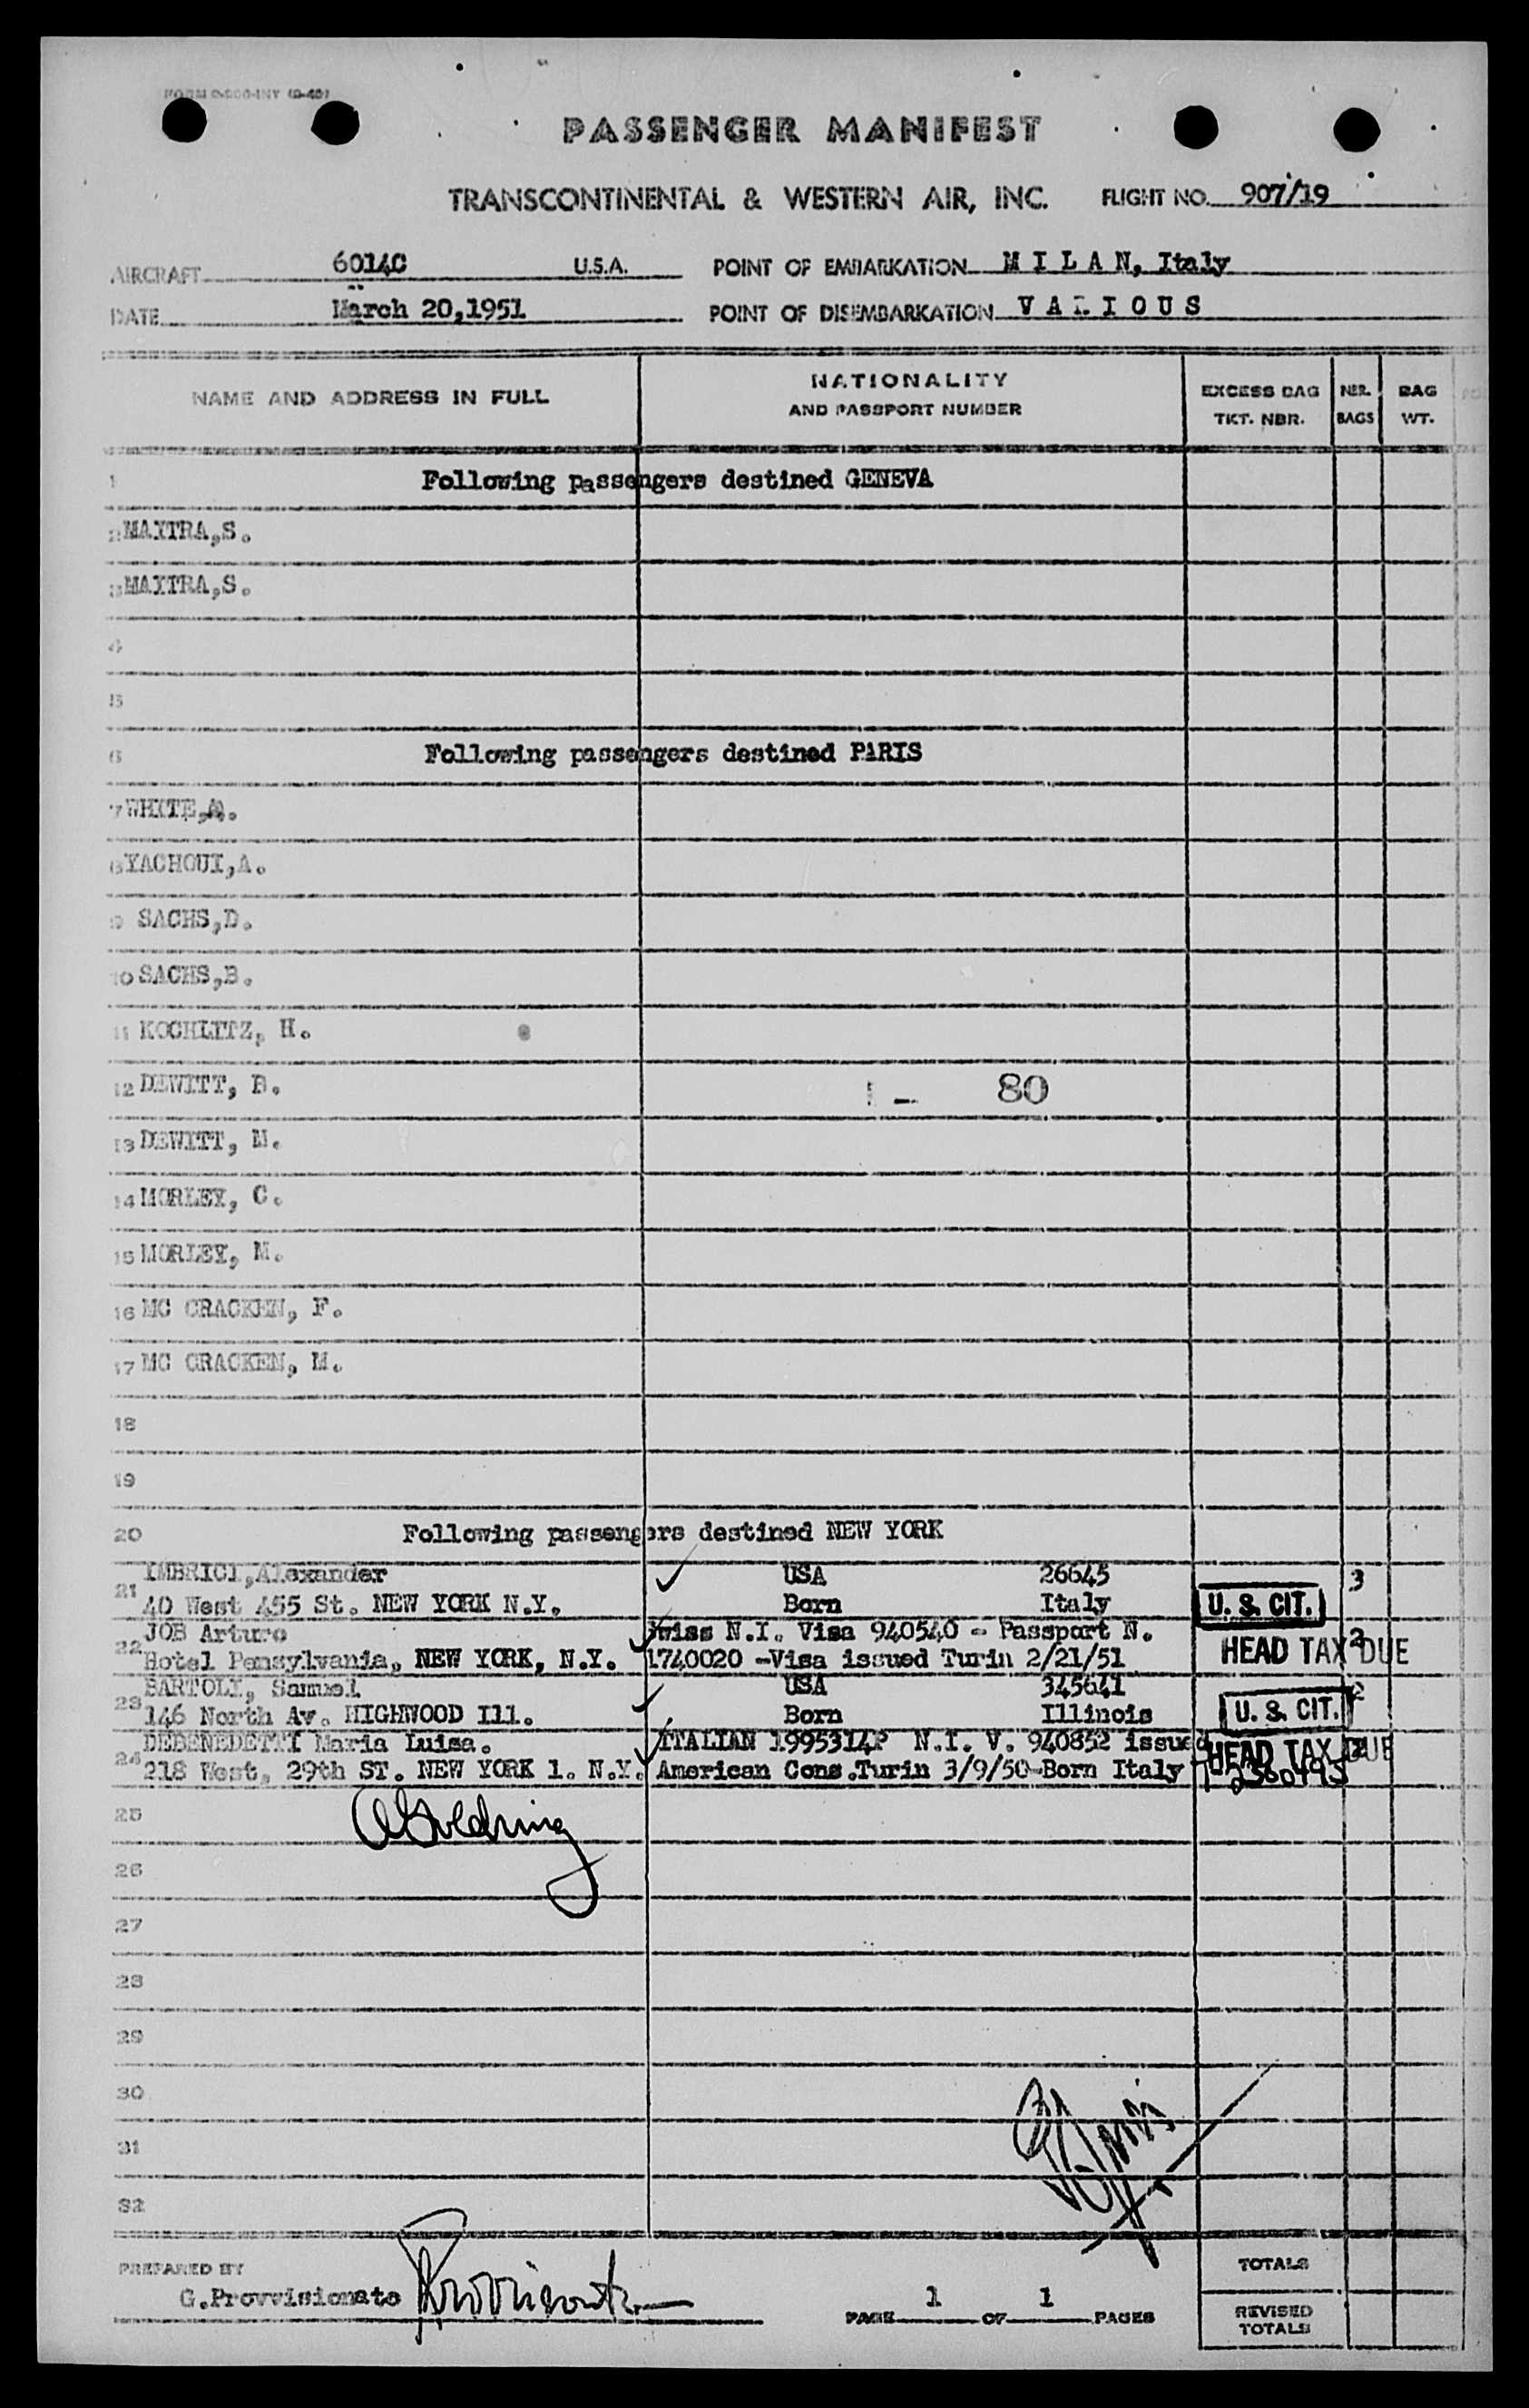 PASSENGER MANIFEST
TRANSCONTINENTAL & WESTERN AIR, INC. FLIGHT NO. 907/19
AIRCRAFT 6014C U.S.A. POINT OF EMBARKATION M I L A N, Italy
DATE March 20,1951 POINT OF DISEMBARKATION V A R I O U S
NAME AND ADDRESS IN FULL
NATIONALITY
AND PASSPORT NUMBER
EXCESS BAG
TKT. NBR.
NBR.
BAGS
BAG
WT.
1 Following passengers destined GENEVA
2 MAITRA,S.
3 MAITRA,S.
4
5
6 Following passengers destined PARIS
7 WHITE,A.
8 YACHOUI,A.
9 SACHS,D.
10 SACHS,B.
11 KOCHLITZ, H.
12 DEWITT, B. - 80
13 DEWITT, M.
14 MORLEY, C.
15 MORLEY, M.
16 MC CRACKEN, F.
17 MC CRACKEN, M.
18
19
20 Following passengers destined NEW YORK
IMBRICI,Alexander USA 26645 3
21 40 West 455 St. NEW YORK N.Y. Born Italy U. S. CIT.
JOB Arturo Swiss N.I. Visa 940540 - Passport N.
22 Hotel Pensylvania, NEW YORK, N.Y. 1740020 -Visa issued Turin 2/21/51 HEAD TAX DUE
BARTOLI, Samuel USA 345641 2
23 146 North Av. HIGHWOOD Ill. Born Illinois U. S. CIT.
DEBENEDETTI Maria Luisa. ITALIAN 1995314P N.I. V. 940852 issued HEAD TAX DUE
24 218 West, 29th ST. NEW YORK 1. N.Y. American Cons.Turin 3/9/50-Born Italy
25
26
27
28
29
30
31
32
PREPARED BY
G.Provvisionato
PAGE 1 OF 1 PAGES
TOTALS
REVISED
TOTALS